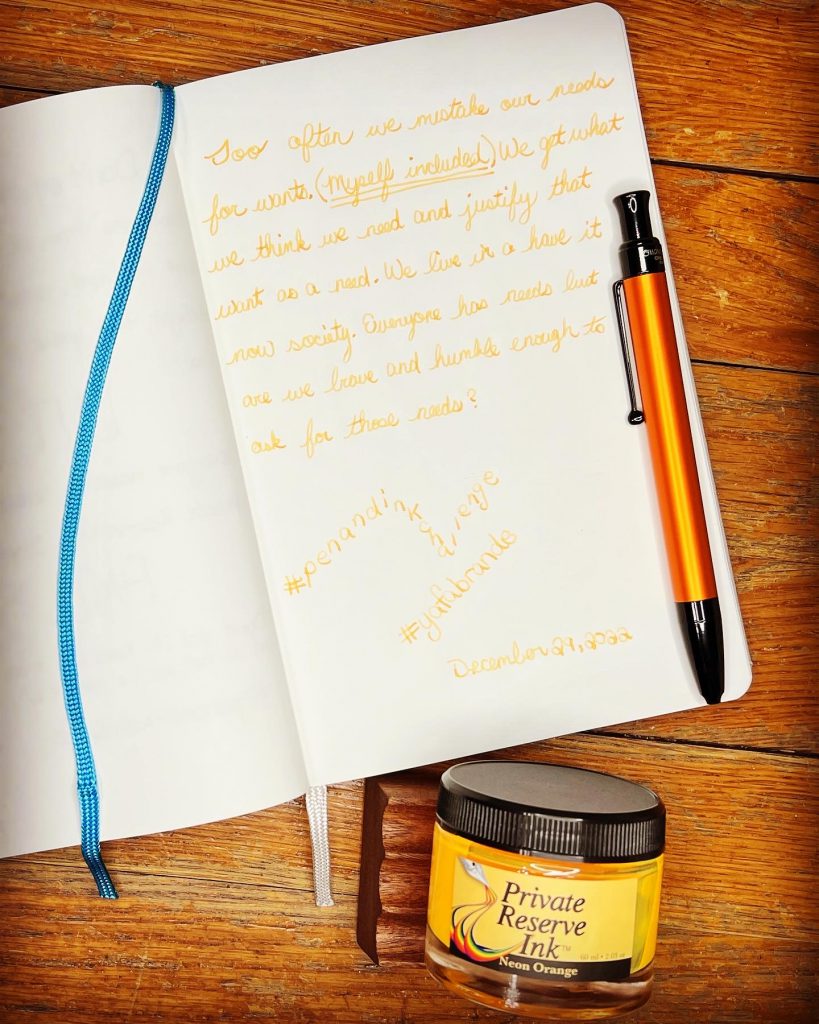 Too often we mistake our needs
for wants. (Myself included) We get what
we think we need and justify that
want as a need. We live in a have it
now society. Everyone has needs but
are we brave and humble enough to
ask for those needs?
#penandink
#yafabrands
December 29, 2022
Private
Reserve
Ink™
60 ml • 2.03 oz
Neon Orange